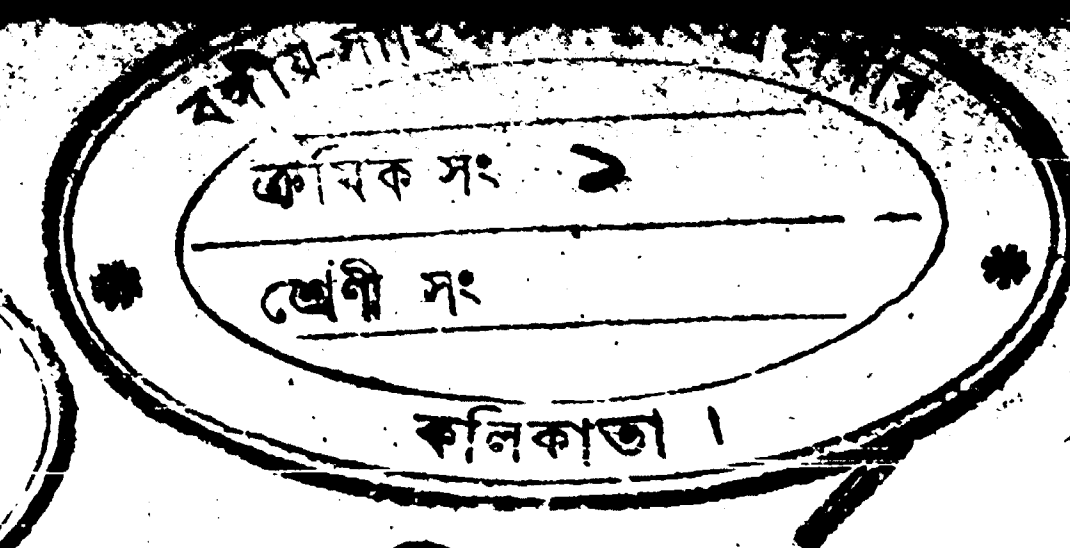 বঙ্গীয়-সাহি
ক্রমিক সং ১
শ্রেণী সং
কলিকাতা ।